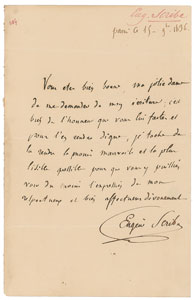 Eug. Scribe
paris le 15 - 9bre 1836
Vous etes bien bonne ma jolie dame
de me demander de mon écriture, c'est
bien de l'honneur que vous lui faites et
pour l'en rendre digne, je tache de
la rendre la moins mauvaise et la plus
lisible possible pour que vous y puissiez
voir du moins l'expression de mon
respectueux et bien affectueux dévouement.
Eugène Scribe